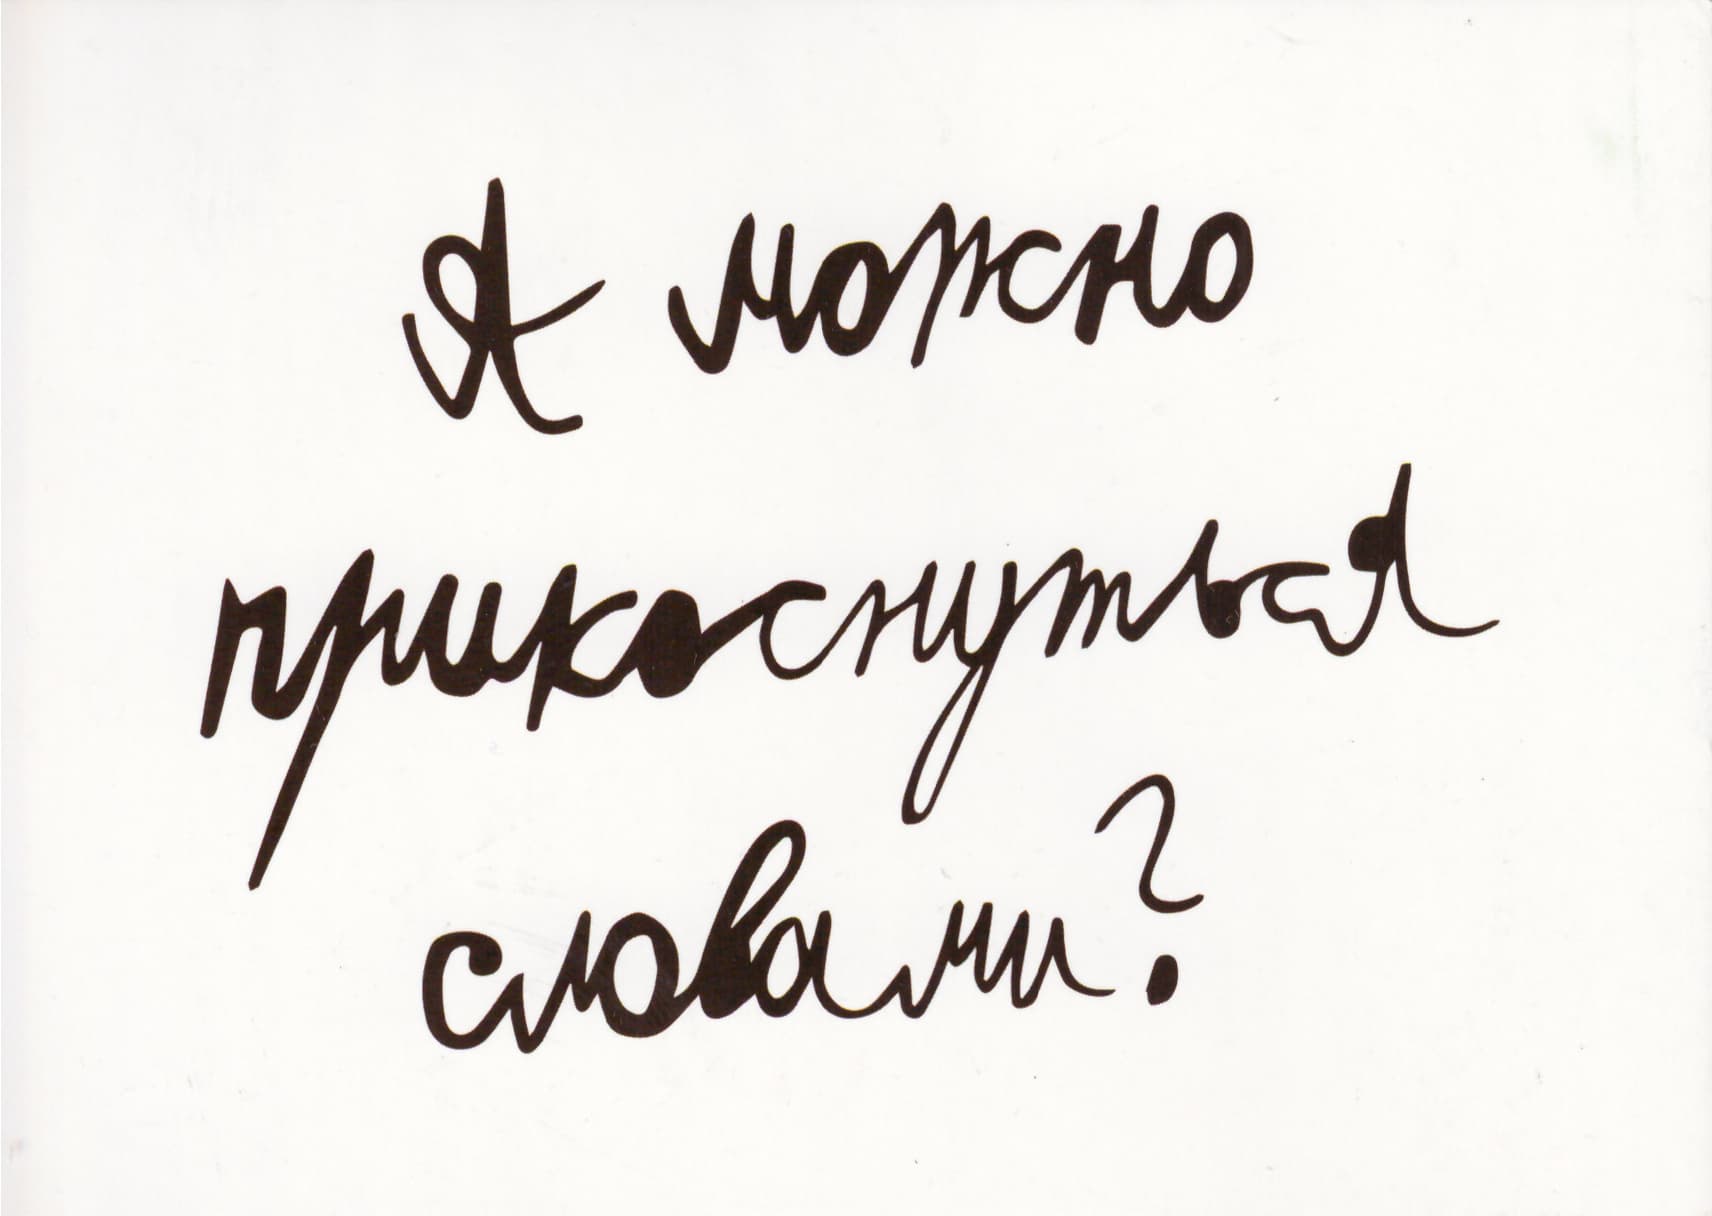 Я можно
прикоснуться
словами?